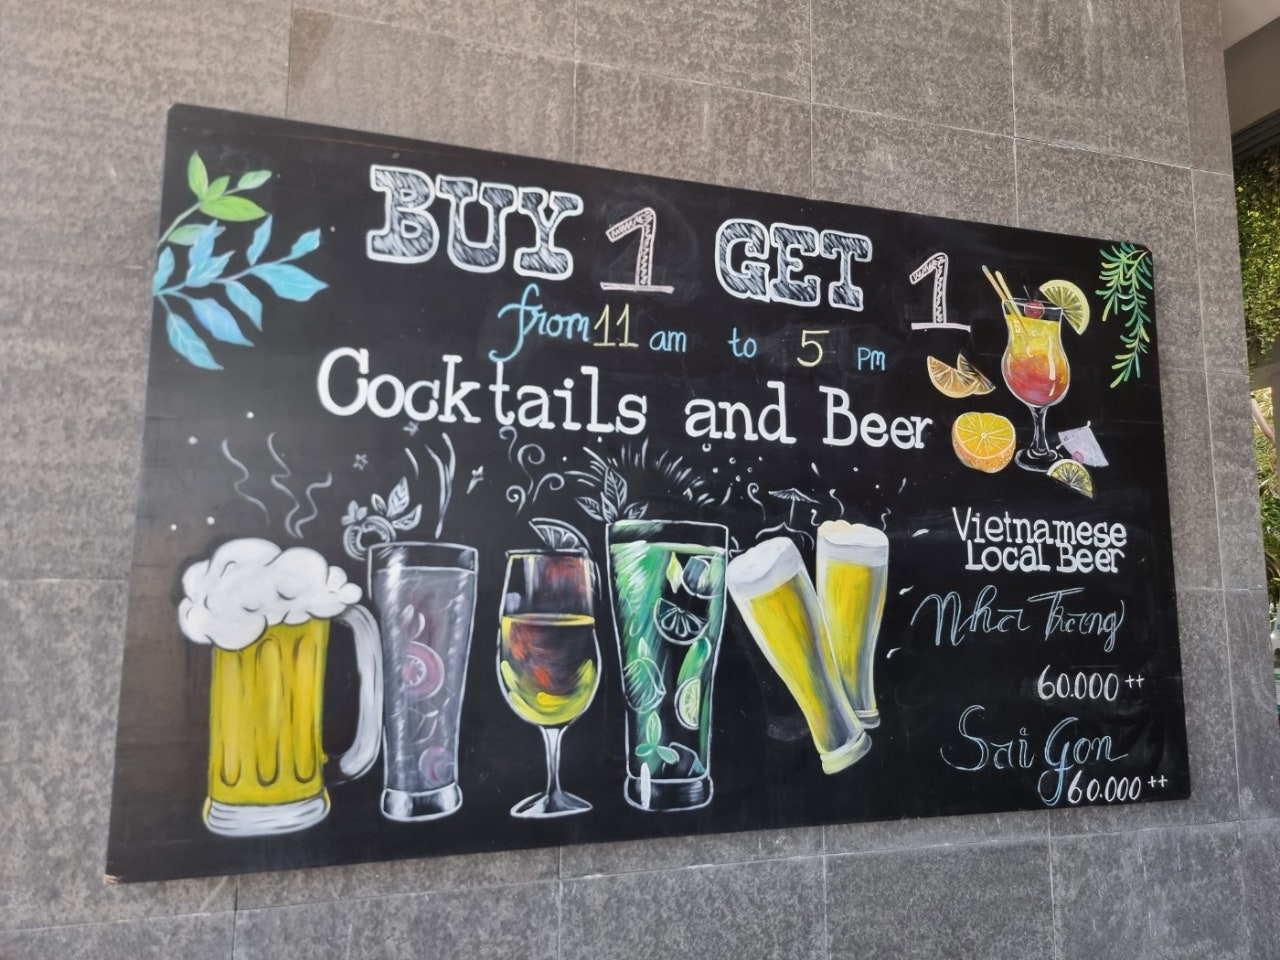 BUY 1 GET 1
from 11 am to 5 pm
Cocktails and Beer
Vietnamese
Local Beer
Nha Trang
60.000++
Sai Gon
60.000++